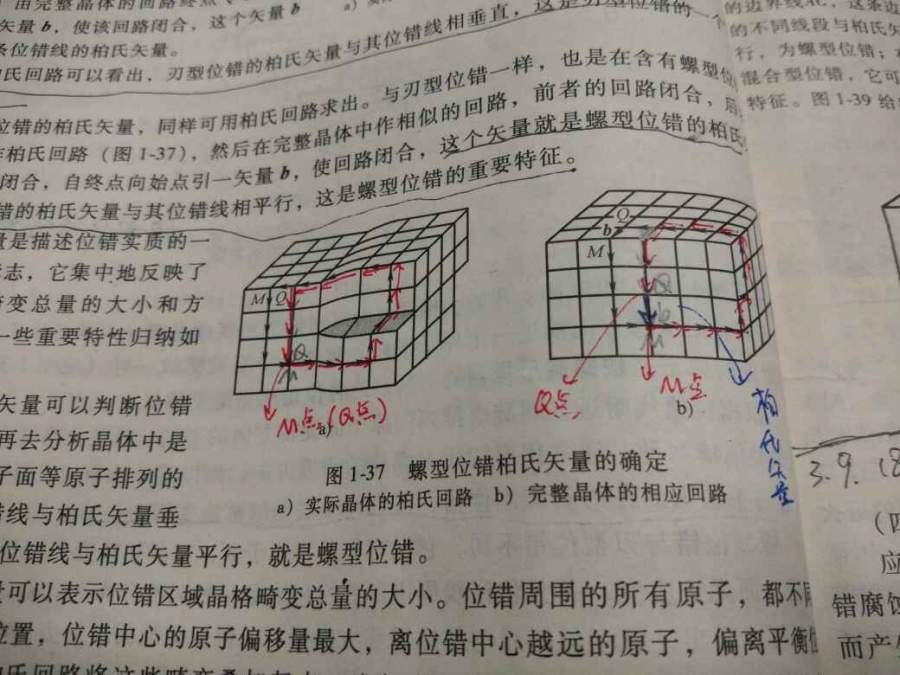 由完整晶体的回路终点
矢量b，使该回路闭合，这个矢量b
条位错线的柏氏矢量。
氏回路可以看出，刃型位错的柏氏矢量与其位错线相垂直，这是刃型位错的一个
位错的柏氏矢量，同样可用柏氏回路求出。与刃型位错一样，也是在含有螺型位
作柏氏回路（图1-37），然后在完整晶体中作相似的回路，前者的回路闭合，后
闭合，自终点向始点引一矢量b，使回路闭合，这个矢量就是螺型位错的柏氏
错的柏氏矢量与其位错线相平行，这是螺型位错的重要特征。
量是描述位错实质的一
志，它集中地反映了
变总量的大小和方
一些重要特性归纳如
矢量可以判断位错
再去分析晶体中是
子面等原子排列的
错线与柏氏矢量垂
位错线与柏氏矢量平行，就是螺型位错。
量可以表示位错区域晶格畸变总量的大小。位错周围的所有原子，都不同
位置，位错中心的原子偏移量最大，离位错中心越远的原子，偏离平衡位
M Q
Q
M
M点（Q点）
a）
Q
b
M
Q
b
M
Q点
M点
b）
柏氏矢量
图1-37 螺型位错柏氏矢量的确定
a）实际晶体的柏氏回路 b）完整晶体的相应回路
的边界线AC，这条边
的不同线段与柏氏矢
行，为螺型位错；
混合型位错，它可
特征。图1-39给
3.9.（8
（四
应
错腐蚀
而产生